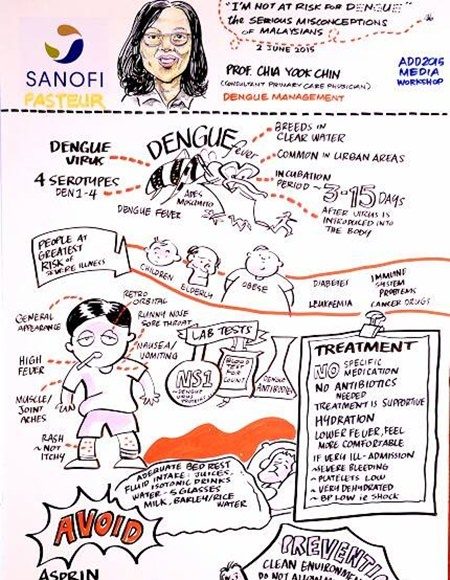 "I'M NOT AT RISK FOR DENGUE"
the SERIOUS MISCONCEPTIONS
OF MALAYSIANS
2 JUNE 2015
SANOFI
PASTEUR
PROF. CHIA YOOK CHIN
(CONSULTANT PRIMARY CARE PHYSICIAN)
DENGUE MANAGEMENT
ADD2015
MEDIA
WORKSHOP
DENGUE
VIRUS
4 SEROTYPES
DEN 1-4
DENGUE
fever
AEDES
MOSQUITO
DENGUE FEVER
BREEDS IN
CLEAR WATER
COMMON IN URBAN AREAS
INCUBATION
PERIOD ~ 3-15 DAYS
AFTER VIRUS IS
INTRODUCED INTO
THE BODY
PEOPLE AT
GREATEST
RISK OF
SEVERE ILLNESS
CHILDREN
ELDERLY
OBESE
DIABETES
LEUKAEMIA
IMMUNE
SYSTEM
PROBLEMS
CANCER DRUGS
GENERAL
APPEARANCE
HIGH
FEVER
MUSCLE/
JOINT
ACHES
RASH
~ NOT
ITCHY
RETRO
ORBITAL
RUNNY NOSE
SORE THROAT
NAUSEA/
VOMITING
LAB TESTS
NS1
~ DENGUE
VIRUS
PROTEIN
BLOOD
TEST
FOR
COUNT
DENGUE
ANTIBODIES
TREATMENT
NO SPECIFIC
MEDICATION
NO ANTIBIOTICS
NEEDED
TREATMENT IS SUPPORTIVE
HYDRATION
LOWER FEVER, FEEL
MORE COMFORTABLE
IF VERY ILL - ADMISSION
~ SEVERE BLEEDING
~ PLATELETS LOW
~ VERY DEHYDRATED
~ BP LOW ie SHOCK
ADEQUATE BED REST
FLUID INTAKE: JUICES,
ISOTONIC DRINKS
WATER - 5 GLASSES
MILK, BARLEY/RICE
WATER
AVOID
ASPRIN
PREVENTI
CLEAN ENVIRONME
DO NOT ALLOW